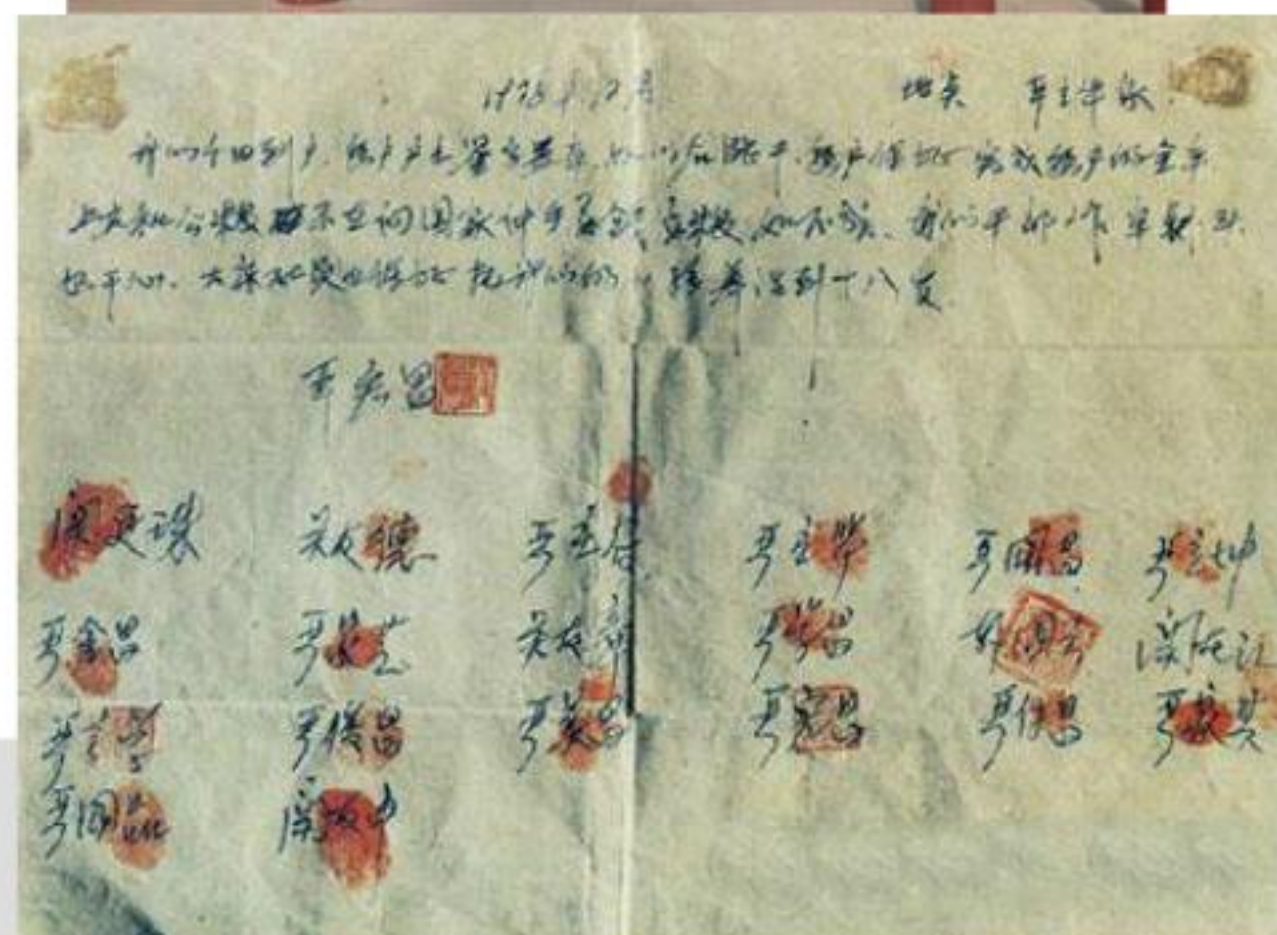 1978年12月 地点 严立华家
我们分田到户,每户户主签字盖章,如以后能干,每户保证完成每户的全年
上交和公粮,不在向国家伸手要钱要粮,如不成,我们干部作牢刹头
也干心,大家社员也保证把我们的小孩养活到十八岁
严宏昌
关友德 严立华 严国昌 严立坤
严金昌 关友章
严立学 严俊昌 严美昌 严宏昌 严付昌 严家其
严国品 关友申